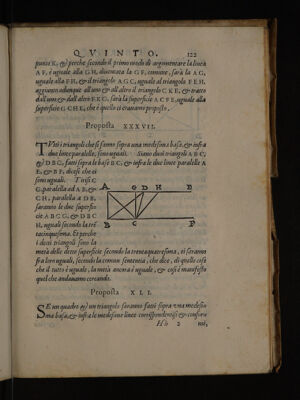 QVINTO. 122
punto K, & perche secondo il primo modo di argumentare la linea
A F, è uguale alla G H, diuentata la G F, comune, sarà la A G,
uguale alla F H, & il triangolo A G C, uguale al triangolo F E H.
aggiunto adunque all'uno & all'altro il triangolo C K E, & tratto
dall'uno & dall'altro F K G, sarà la superficie A C F E, uguale alla
superficie G C H E, che è quello ci erauamo proposto.
Proposta XXXVII.
TVtti i triangoli che si fanno sopra una medesima base, & infra le
due linee parallele, sono infra loro uguali. Siano duoi triangoli A B C,
& D B C, fatti sopra la base B C, & infra le due linee parallele A
E, & B F, dicasi che ei
sono uguali. Tirisi C
G, parallela ad A B, &
C H, parallela a D B,
saranno le due superfi
cie A B C G, & D B C
H, uguali secondo la tre
tacinquesima. Et perche
i detti triangoli sono la
A G D H E
B C F
metà delle dette superficie secondo la trentaquatresima, ei saranno
fra loro uguali, secondo la comune sententia, che dice, di quelle cosi
che il tutto è uguale, la metà ancora è uguale, & cosi è manifesto
quel che andauamo cercando.
Proposta XLI.
SE un quadro & un triangolo saranno fatti sopra una medesi
ma basa, & infra le medesime linee corrispondentisi & consura
H h 2 mi,